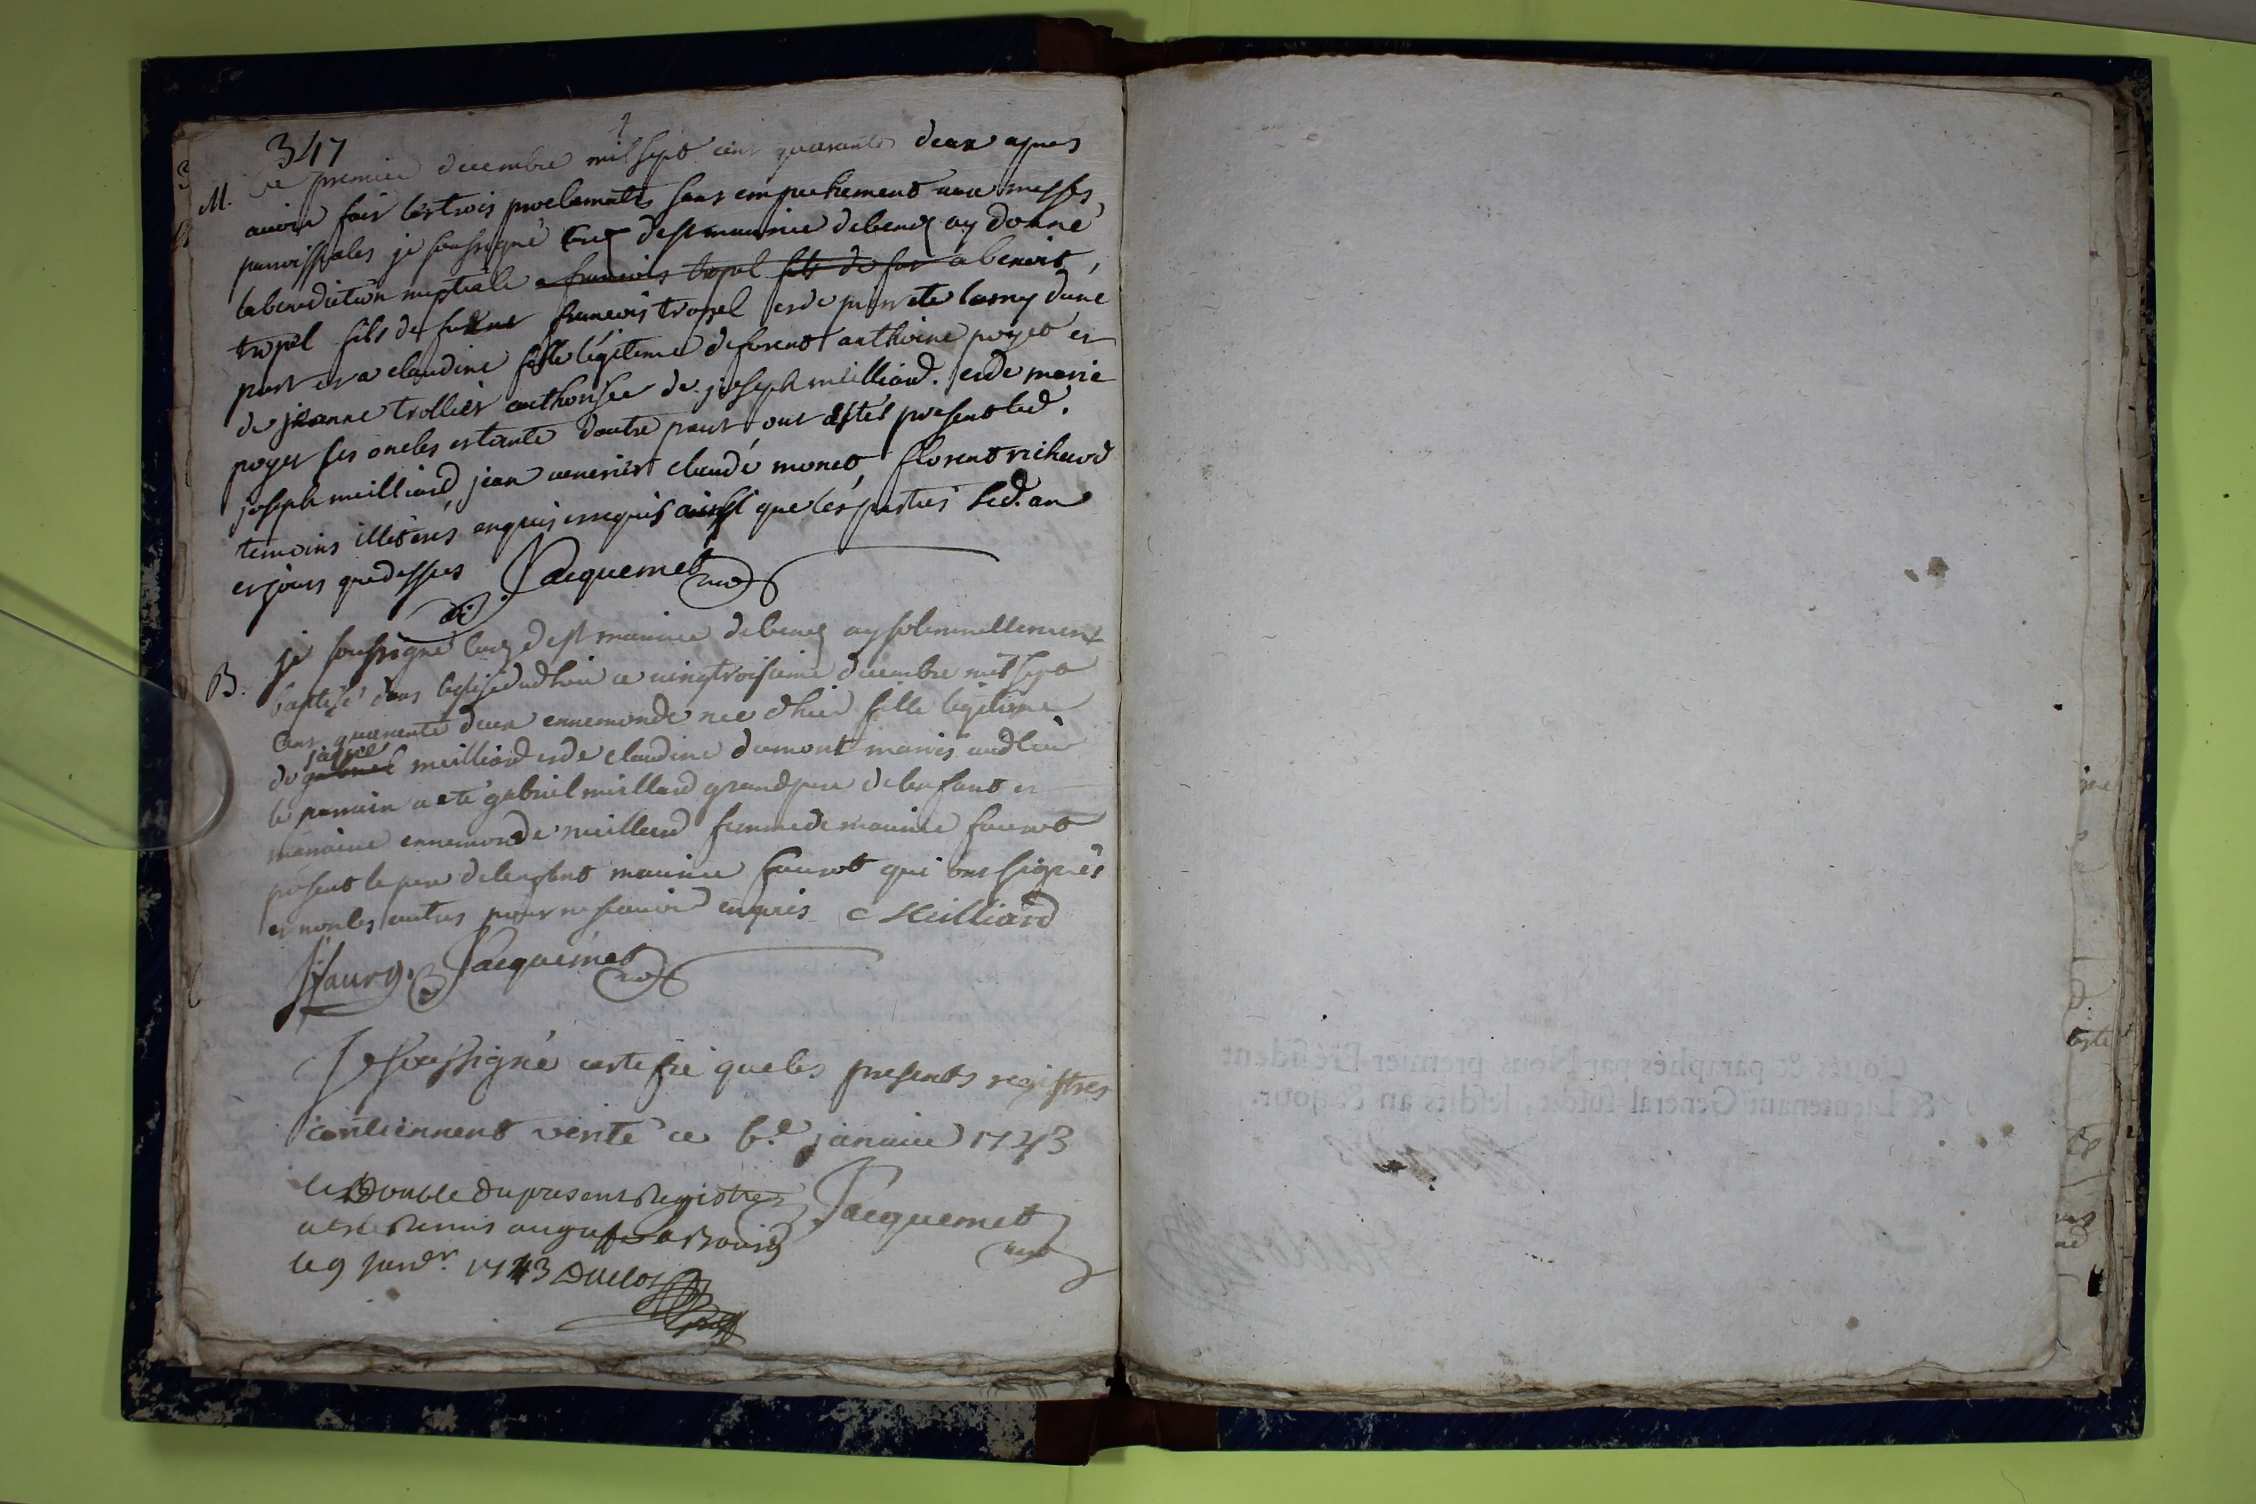 347
M. Le premier decembre mil sept cent quarante deux apres
avoir fait les trois proclamats sans empechement aux messes
paroissiales je soussigné curé de st maurice debeney ay donné
la benediction nuptiale a francois tropel fils de feu a benoit
tropel fils de francois tropel et de pierrete lamy dune
part et a claudine fille légitime de forent anthoine poyet et
de jeanne trollier authorisée de joseph meilliard et de marie
poyet ses oncles et tante dautre part ont estés present led.
joseph meilliard jean venerier claude monet florent richard
temoins illiterés enquis et requis ainsi que les parties led. an
et jours que dessus Jacquemet curé
B. je soussigné curé de st maurice debeney ay solemnellement
baptisé dans leglise dud lieu ce vingtroisieme decembre mil sept
cent quarante deux ennemonde nee dhier fille légitime
joseph
de gabriel meilliard et de claudine dumont mariés aud lieu
le parrain a eté gabriel meillard grand pere de lenfant et
maraine ennemonde meillard femme de maurice faurot
present le pere de lenfant maurice faurot qui ont signés
et non les autres pour ne scavoir enquis Meilliard
faurot Jacquemet curé
Je soussigné certifie que les presents registres
contiennent verité ce 6.e janvier 1743
Jacquemet
curé
le Double du present Registre
a esté Remis au greffe a Bourg
le 9 Janvr. 1743 Duclos
Cottés & paraphés par Nous premier Président
& Lieutenant Général susdit, lesdits an & jour.